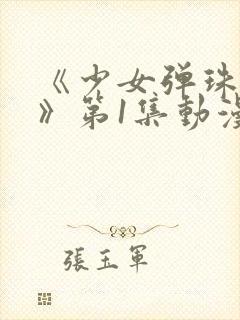 《少女弹珠
》第1集動漫
張玉軍